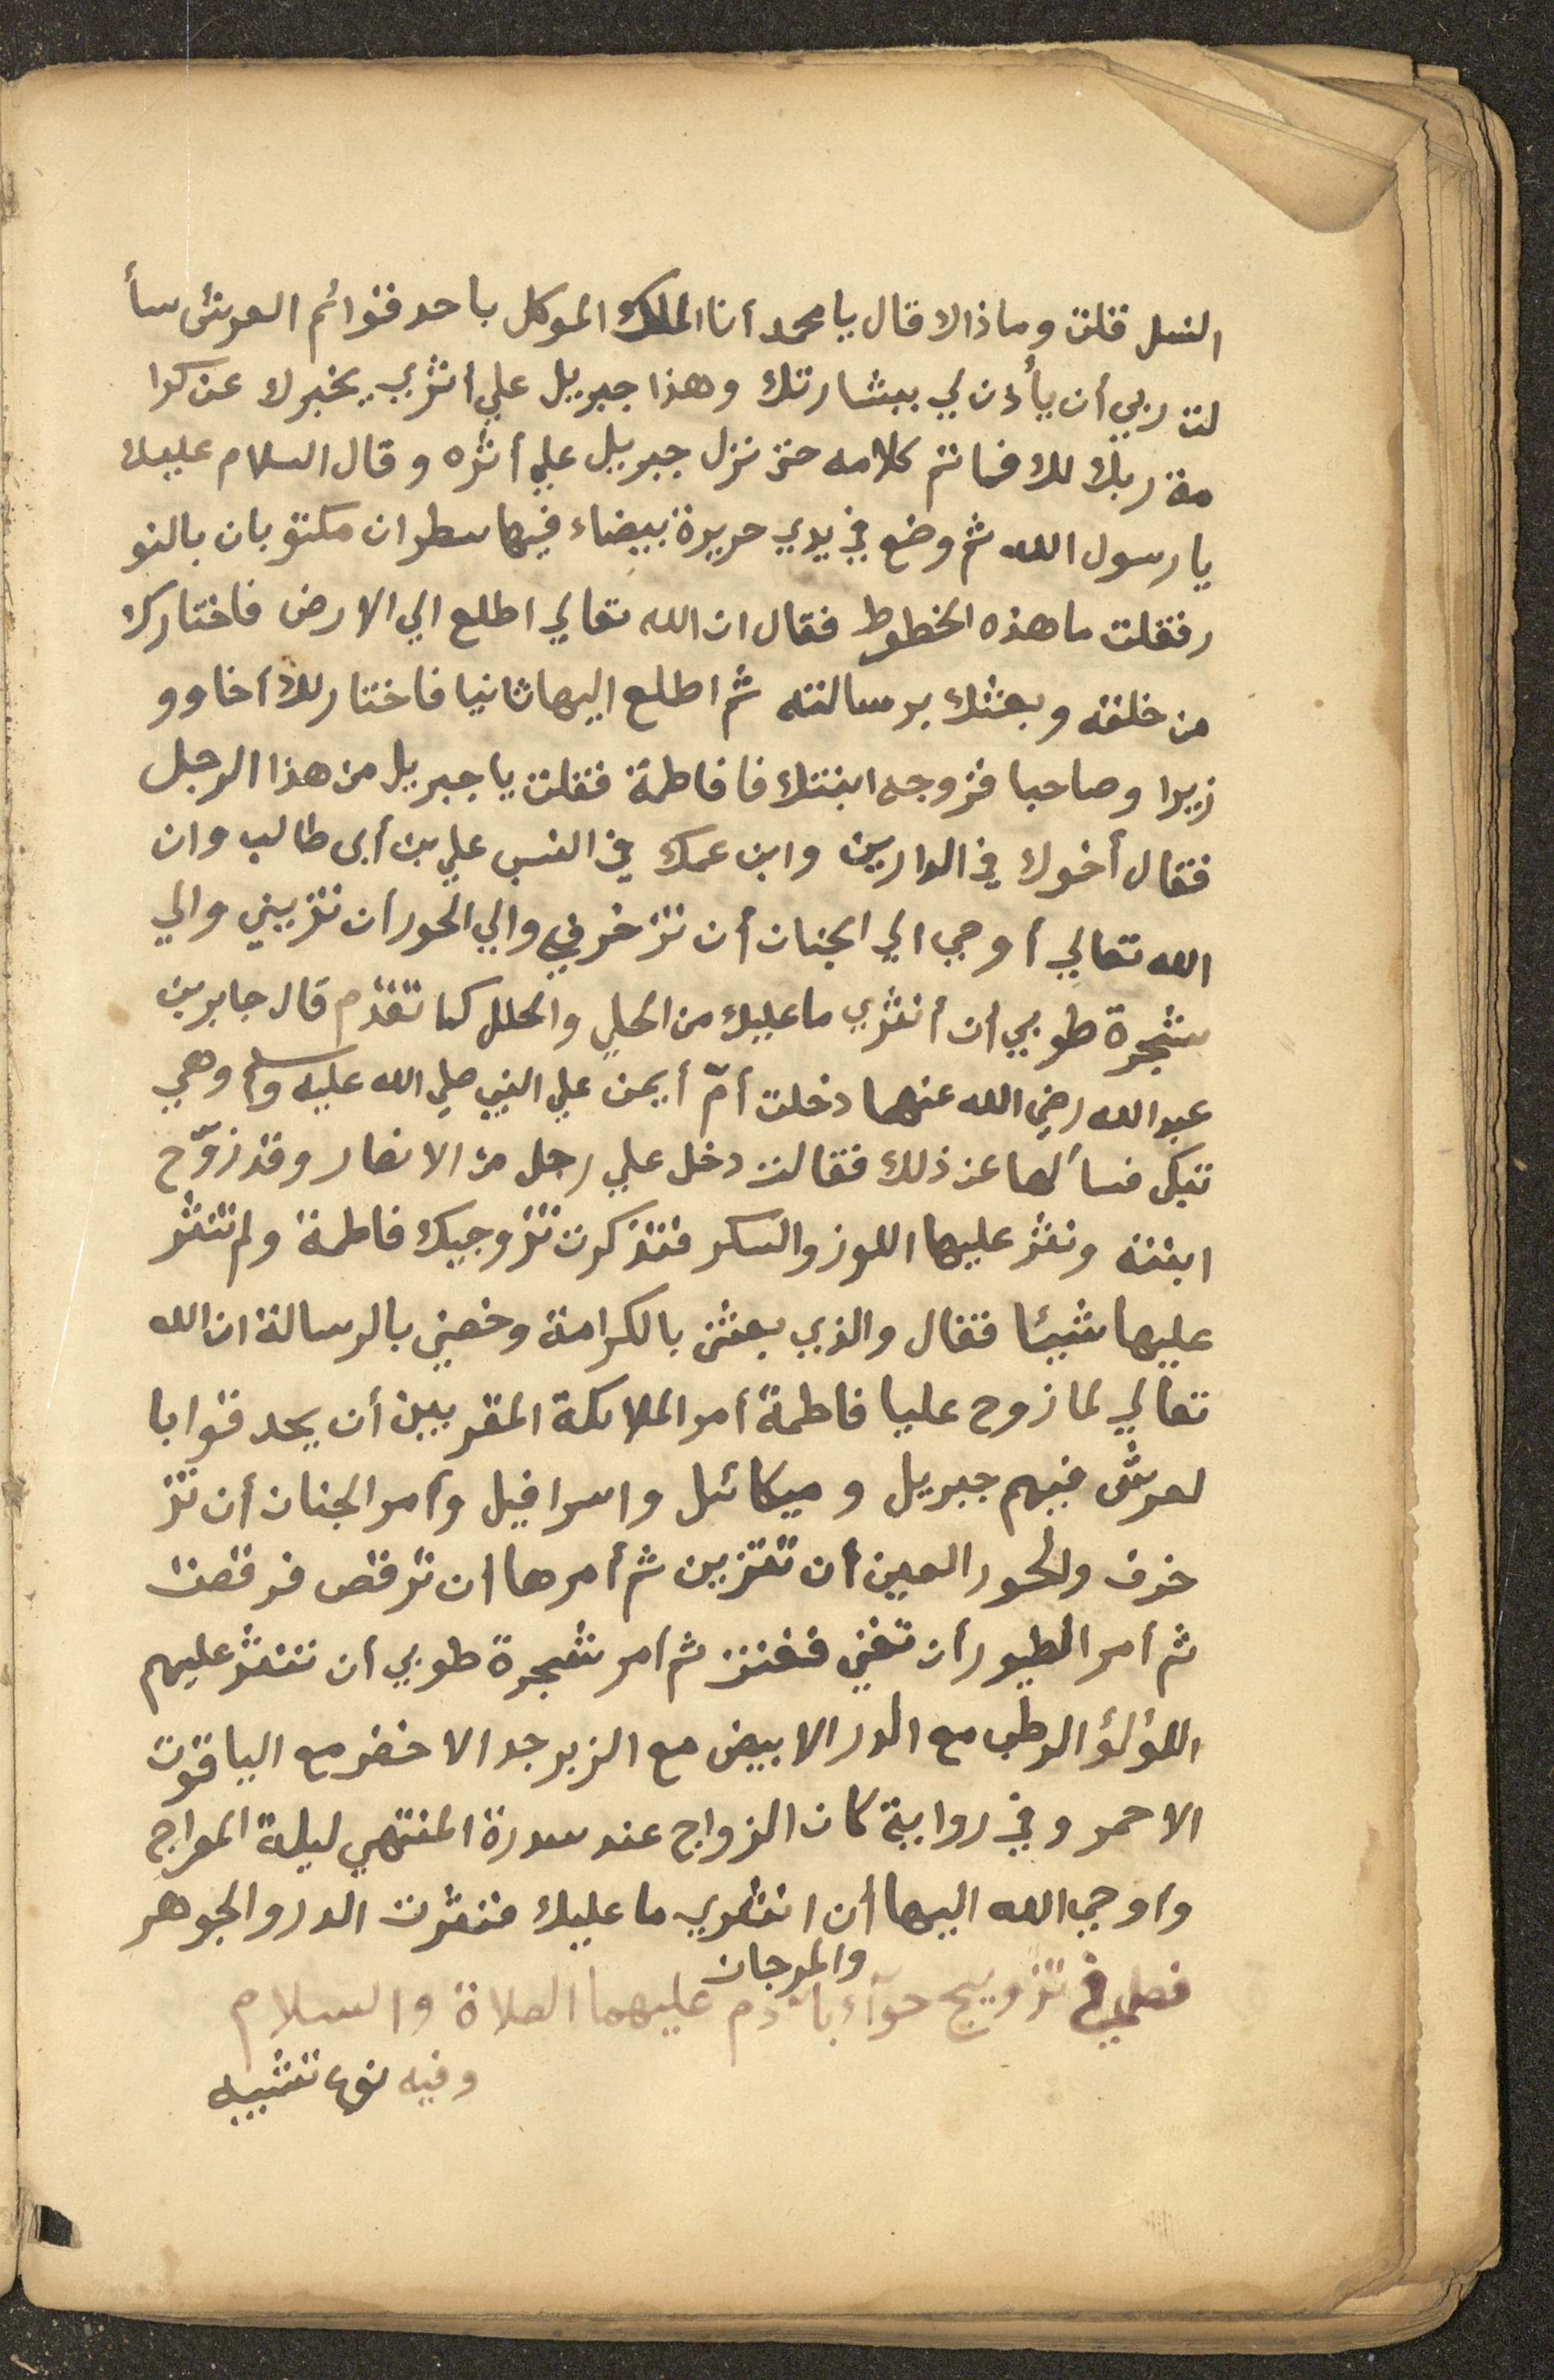 النسل قلت وماذاك قال يا محمد أنا الملك الموكل باحد قوائم العرش سأ
لت ربي أن يأذن لي ببشارتك وهذا جبريل علي أثري يخبرك عن كرا
مة ربك لك فما تم كلامه حتى نزل جبريل علي أثره وقال السلام عليك
يا رسول الله ثم وضع في يدي حريرة بيضاء فيها سطران مكتوبان بالنو
ر فقلت ما هذه الخطوط فقال ان الله تعالي اطلع الي الارض فاختارك
من خلقه وبعثك برسالته ثم اطلع اليها ثانيا فاختار لك أخا وو
زيرا وصاحبا فزوجه ابنتك فافاطمة فقلت يا جبريل من هذا الرجل
فقال أخوك في الدارين وابن عمك في النسب علي بن أبى طالب وان
الله تعالي أوحي الي الجنان أن تزخرفي والي الحور أن تزيني والي
شجرة طوبي أن أنثري ما عليك من الحلي والحلل كما تقدم قال جابر بن
عبد الله رضي الله عنهما دخلت أمّ أيمن علي النبي صلي الله عليه وسلم وهي
تبكى فسألها عن ذلك فقالت دخل علي رجل من الانصار وقد زوّج
ابنته ونثر عليها اللوز والسكر فتذكرت تزوجيك فاطمة ولم تنثر
عليها شيئا فقال والذي بعثنى بالكرامة وخصني بالرسالة ان الله
تعالي لما زوج عليا فاطمة أمر الملائكة المقربين أن يحدقوا با
لعرش فيهم جبريل وميكائيل واسرافيل وأمر الجنان أن تز
خرف والحور العين أن تتزين ثم أمرها ان ترقص فرقصت
ثم أمر الطيور أن تغني فغنت ثم أمر شجرة طوبي أن تنثر عليهم
اللؤلؤ الرطب مع الدر الابيض مع الزبرجد الاخضر مع الياقوت
الاحمر وفي رواية كان الزواج عند سدرة المنتهي ليلة المعراج
واوحي الله اليها أن انثري ما عليك فنثرت الدر والجوهر
والمرجان
فصل في تزويج حوآء بآدم عليهما الصلاة والسلام
وفيه نوع تشبيه